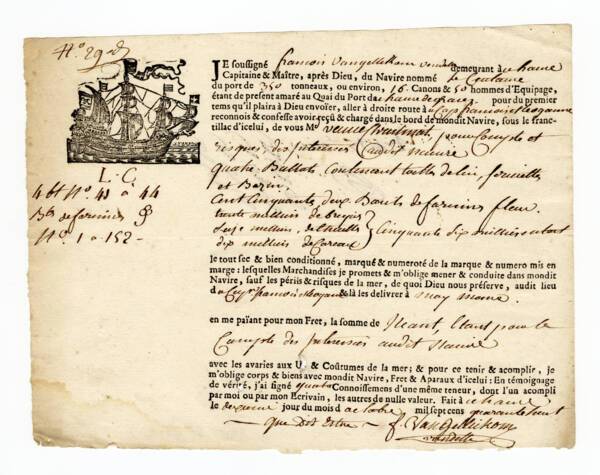 N.o 29
JE soussigné françois demeurant à
Capitaine & Maître, après Dieu, du Navire nommé le Centaure
du port de 350 tonneaux, ou environ, 16. Canons & 50 hommes d'Equipage,
étant de present amaré au Quai du Port du havre de grace pour du premier
tems qu'il plaira à Dieu envoïer, aller à droite route à
reconnois & confesse avoir reçû & chargé dans le bord de mondit Navire, sous le franc-
tillac d'icelui, de vous Mr veuve pour Compte et
risques des audit navire
L. C.
4 bt N.o 41 à 44
Bts de farines
N.o 1 a 152 -
quatre Ballots, Contenant toilles de lin, serviettes
et Bazin.
Cent Cinquante deux Barils de farines fleur.
trente milliers de
milliers, Cinquante dix milliers en tout
dix milliers de Carreaux
le tout sec & bien conditionné, marqué & numeroté de la marque & numero mis en
marge: lesquelles Marchandises je promets & m'oblige mener & conduire dans mondit
Navire, sauf les périls & risques de la mer, de quoi Dieu nous préserve, audit lieu
& là les délivrer à moy meme.
en me païant pour mon Fret, la somme de Neant, Etant pour le
Compte des audit Navire
avec les avaries aux Us & Coûtumes de la mer; & pour ce tenir & acomplir, je
m'oblige corps & biens avec mondit Navire, Fret & Aparaux d'icelui: En témoignage
de vérité, j'ai signé quatre Connoissemens d'une même teneur, dont l'un acompli
par moi ou par mon Ecrivain, les autres de nulle valeur. Fait à
le jour du mois d octobre mil sept cens quarante huit
que dit être